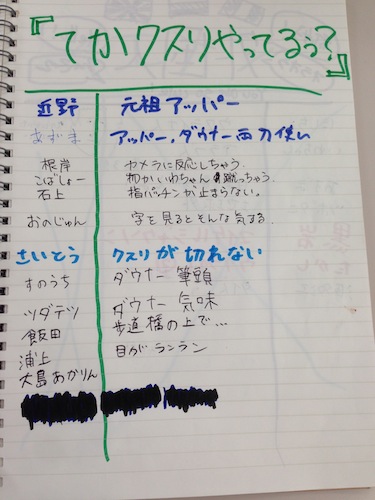 『てかクスリやってるぅ?』
近野 元祖アッパー
あずま アッパー、ダウナー両刀使い
根岸 カメラに反応しちゃう。
こばしょー 物かいわちゃん蹴っちゃう。
石上 指パッチンが止まらない。
おのじゅん 字を見るとそんな気する。
さいとう クスリが切れない
すのうち ダウナー筆頭
ツダテツ ダウナー気味
飯田 歩道橋の上で…
浦上 目がランラン
大島あかりん